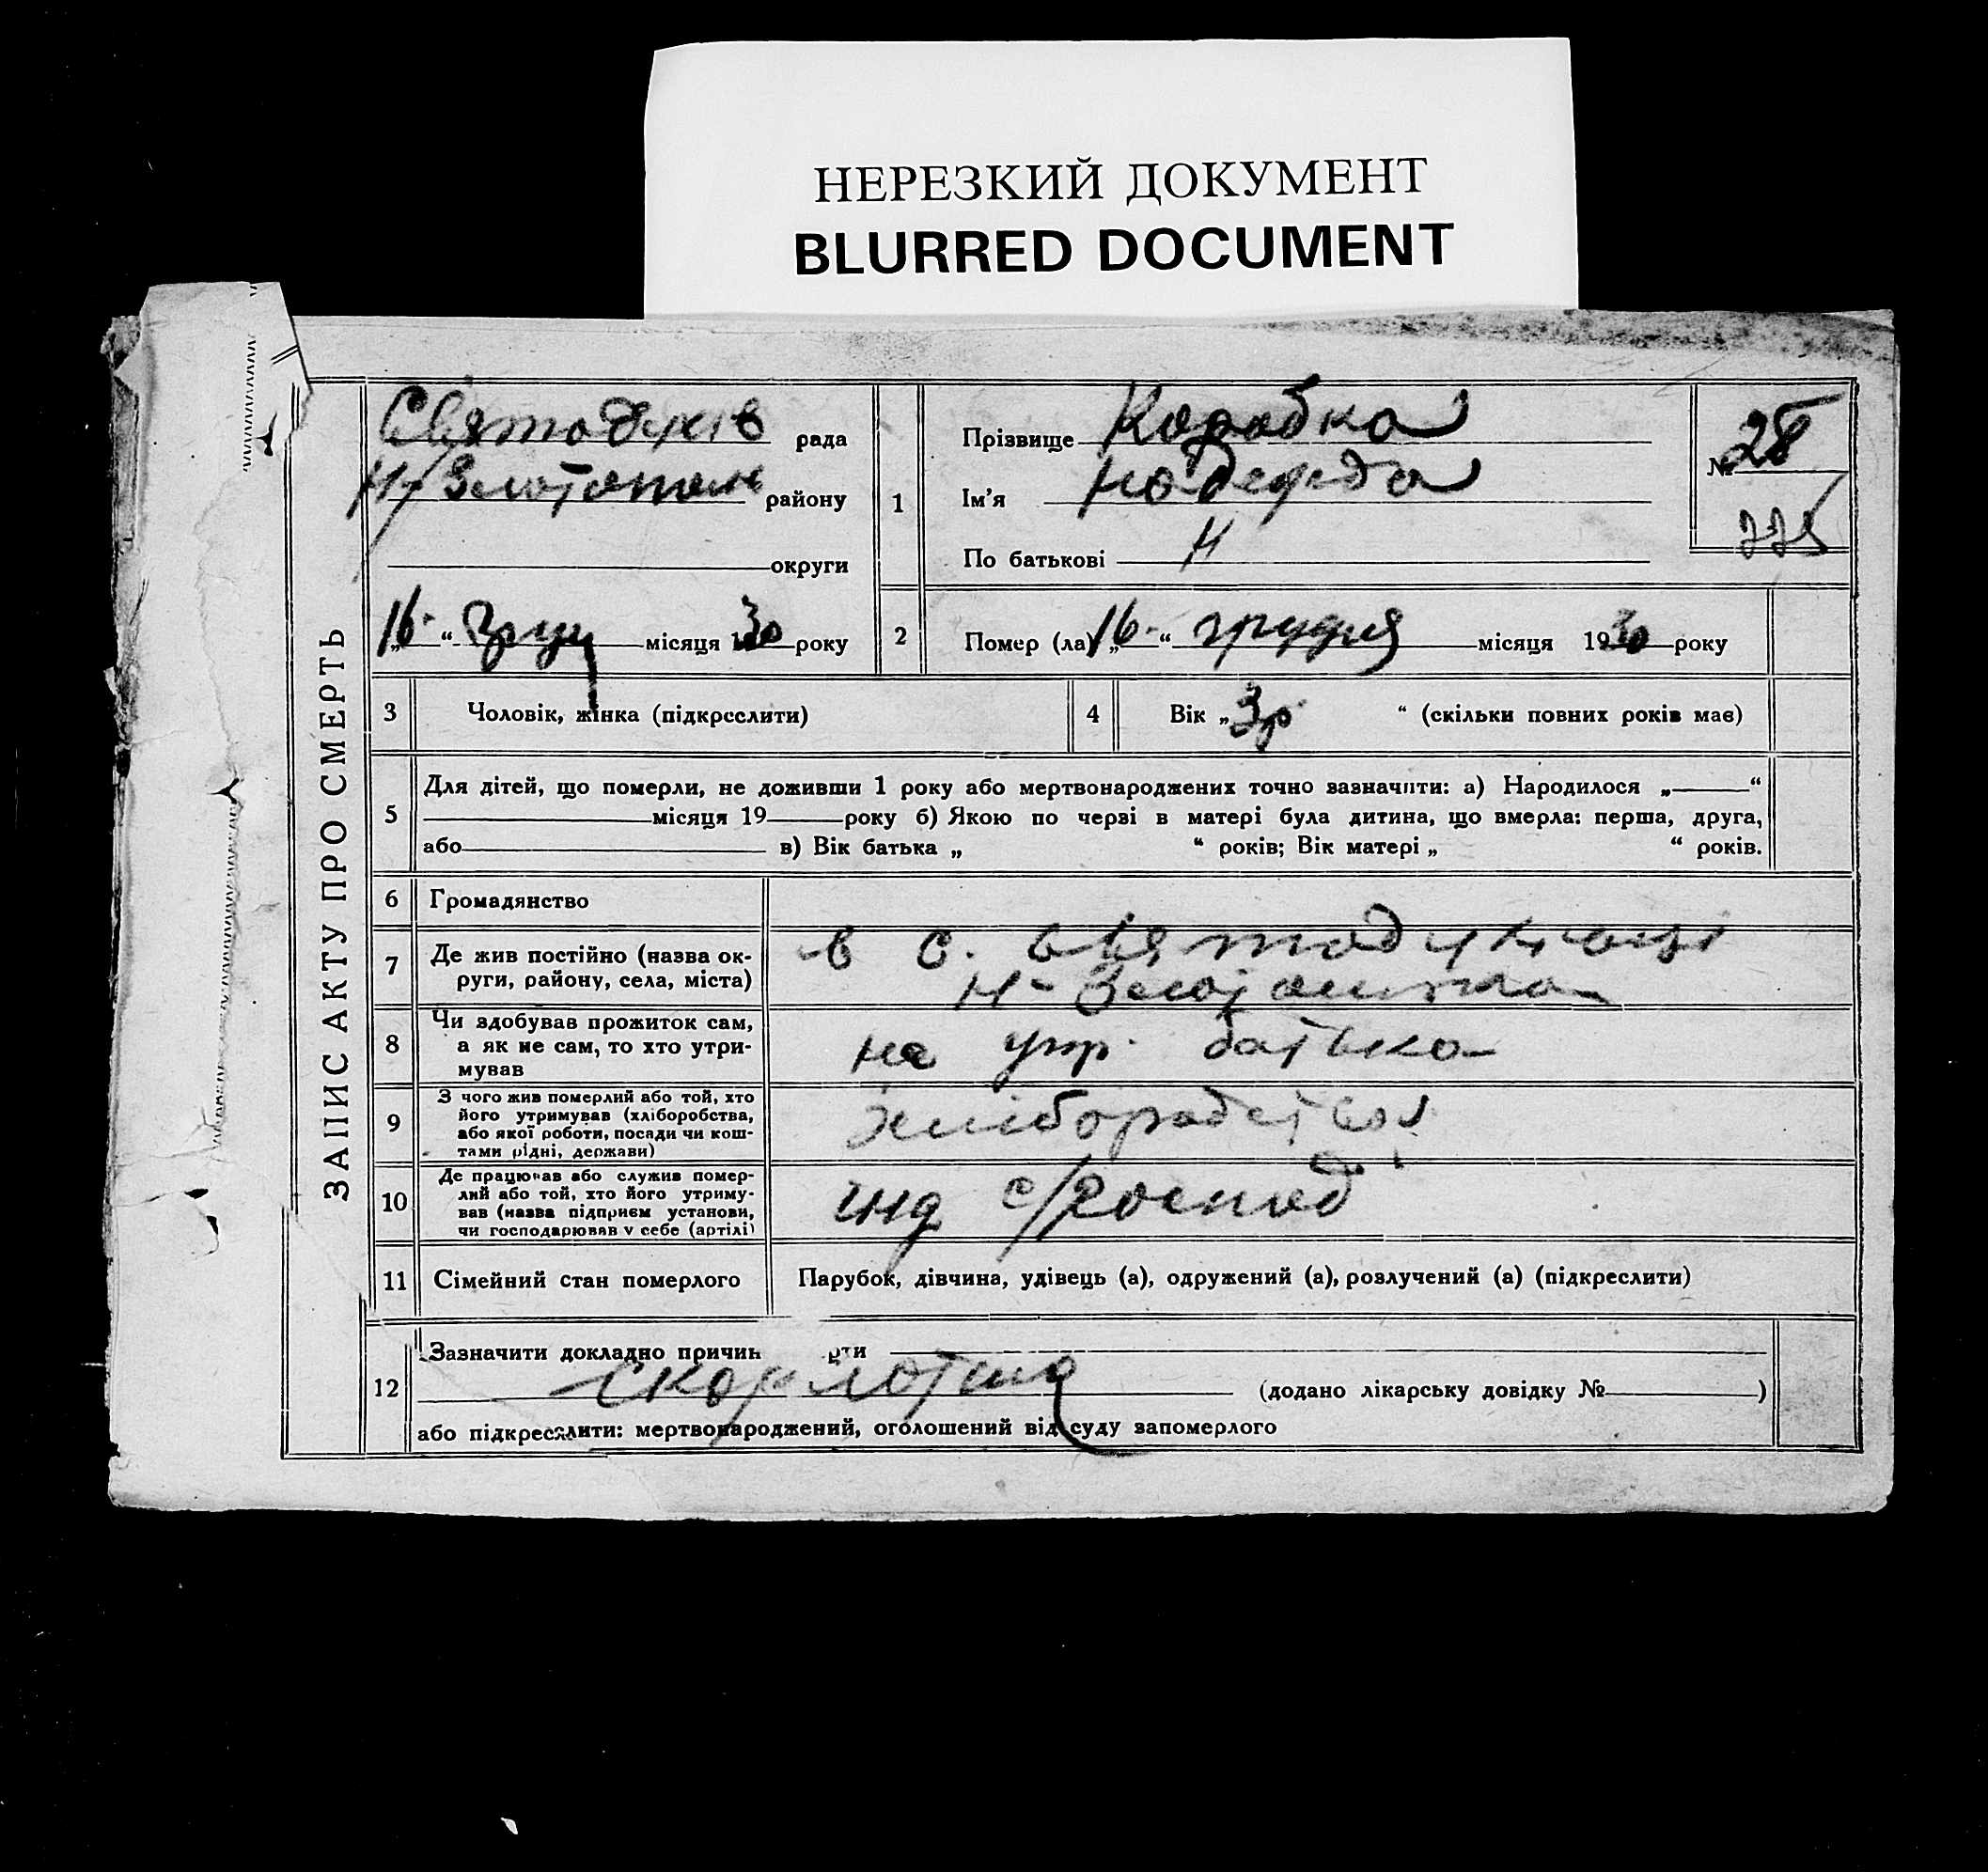 НЕРЕЗКИЙ ДОКУМЕНТ
BLURRED DOCUMENT
ЗАПИС АКТУ ПРО СМЕРТЬ
Святодухів рада
району
округи
„16“ груд місяця 1930 року
1 Прізвище Коробка
Ім’я Надежда
По батькові Н
№ 28
2 Помер (ла) „16“ грудня місяця 1930 року
3 Чоловік, жінка (підкреслити)
4 Вік „3р“ (скільки повних років має)
5 Для дітей, що померли, не доживши 1 року або мертвонароджених точно зазначити: а) Народилося „ “
місяця 19 року б) Якою по черві в матері була дитина, що вмерла: перша, друга,
або в) Вік батька „ “ років; Вік матері „ “ років.
6 Громадянство
7 Де жив постійно (назва ок-
руги, району, села, міста)
в с.
8 Чи здобував прожиток сам,
а як не сам, то хто утри-
мував
на утр. батька
9 З чого жив померлий або той, хто
його утримував (хліборобства,
або якої роботи, посади чи кош-
тами рідні, держави)
10 Де працював або служив помер-
лий або той, хто його утриму-
вав (назва підприєм установи,
чи господарював у себе (артілі)
инд с/господ
11 Сімейний стан померлого
Парубок, дівчина, удівець (а), одружений (а), розлучений (а) (підкреслити)
12 Зазначити докладно причин рти
скорлотина
(додано лікарську довідку № )
або підкреслити: мертвонароджений, оголошений від суду запомерлого